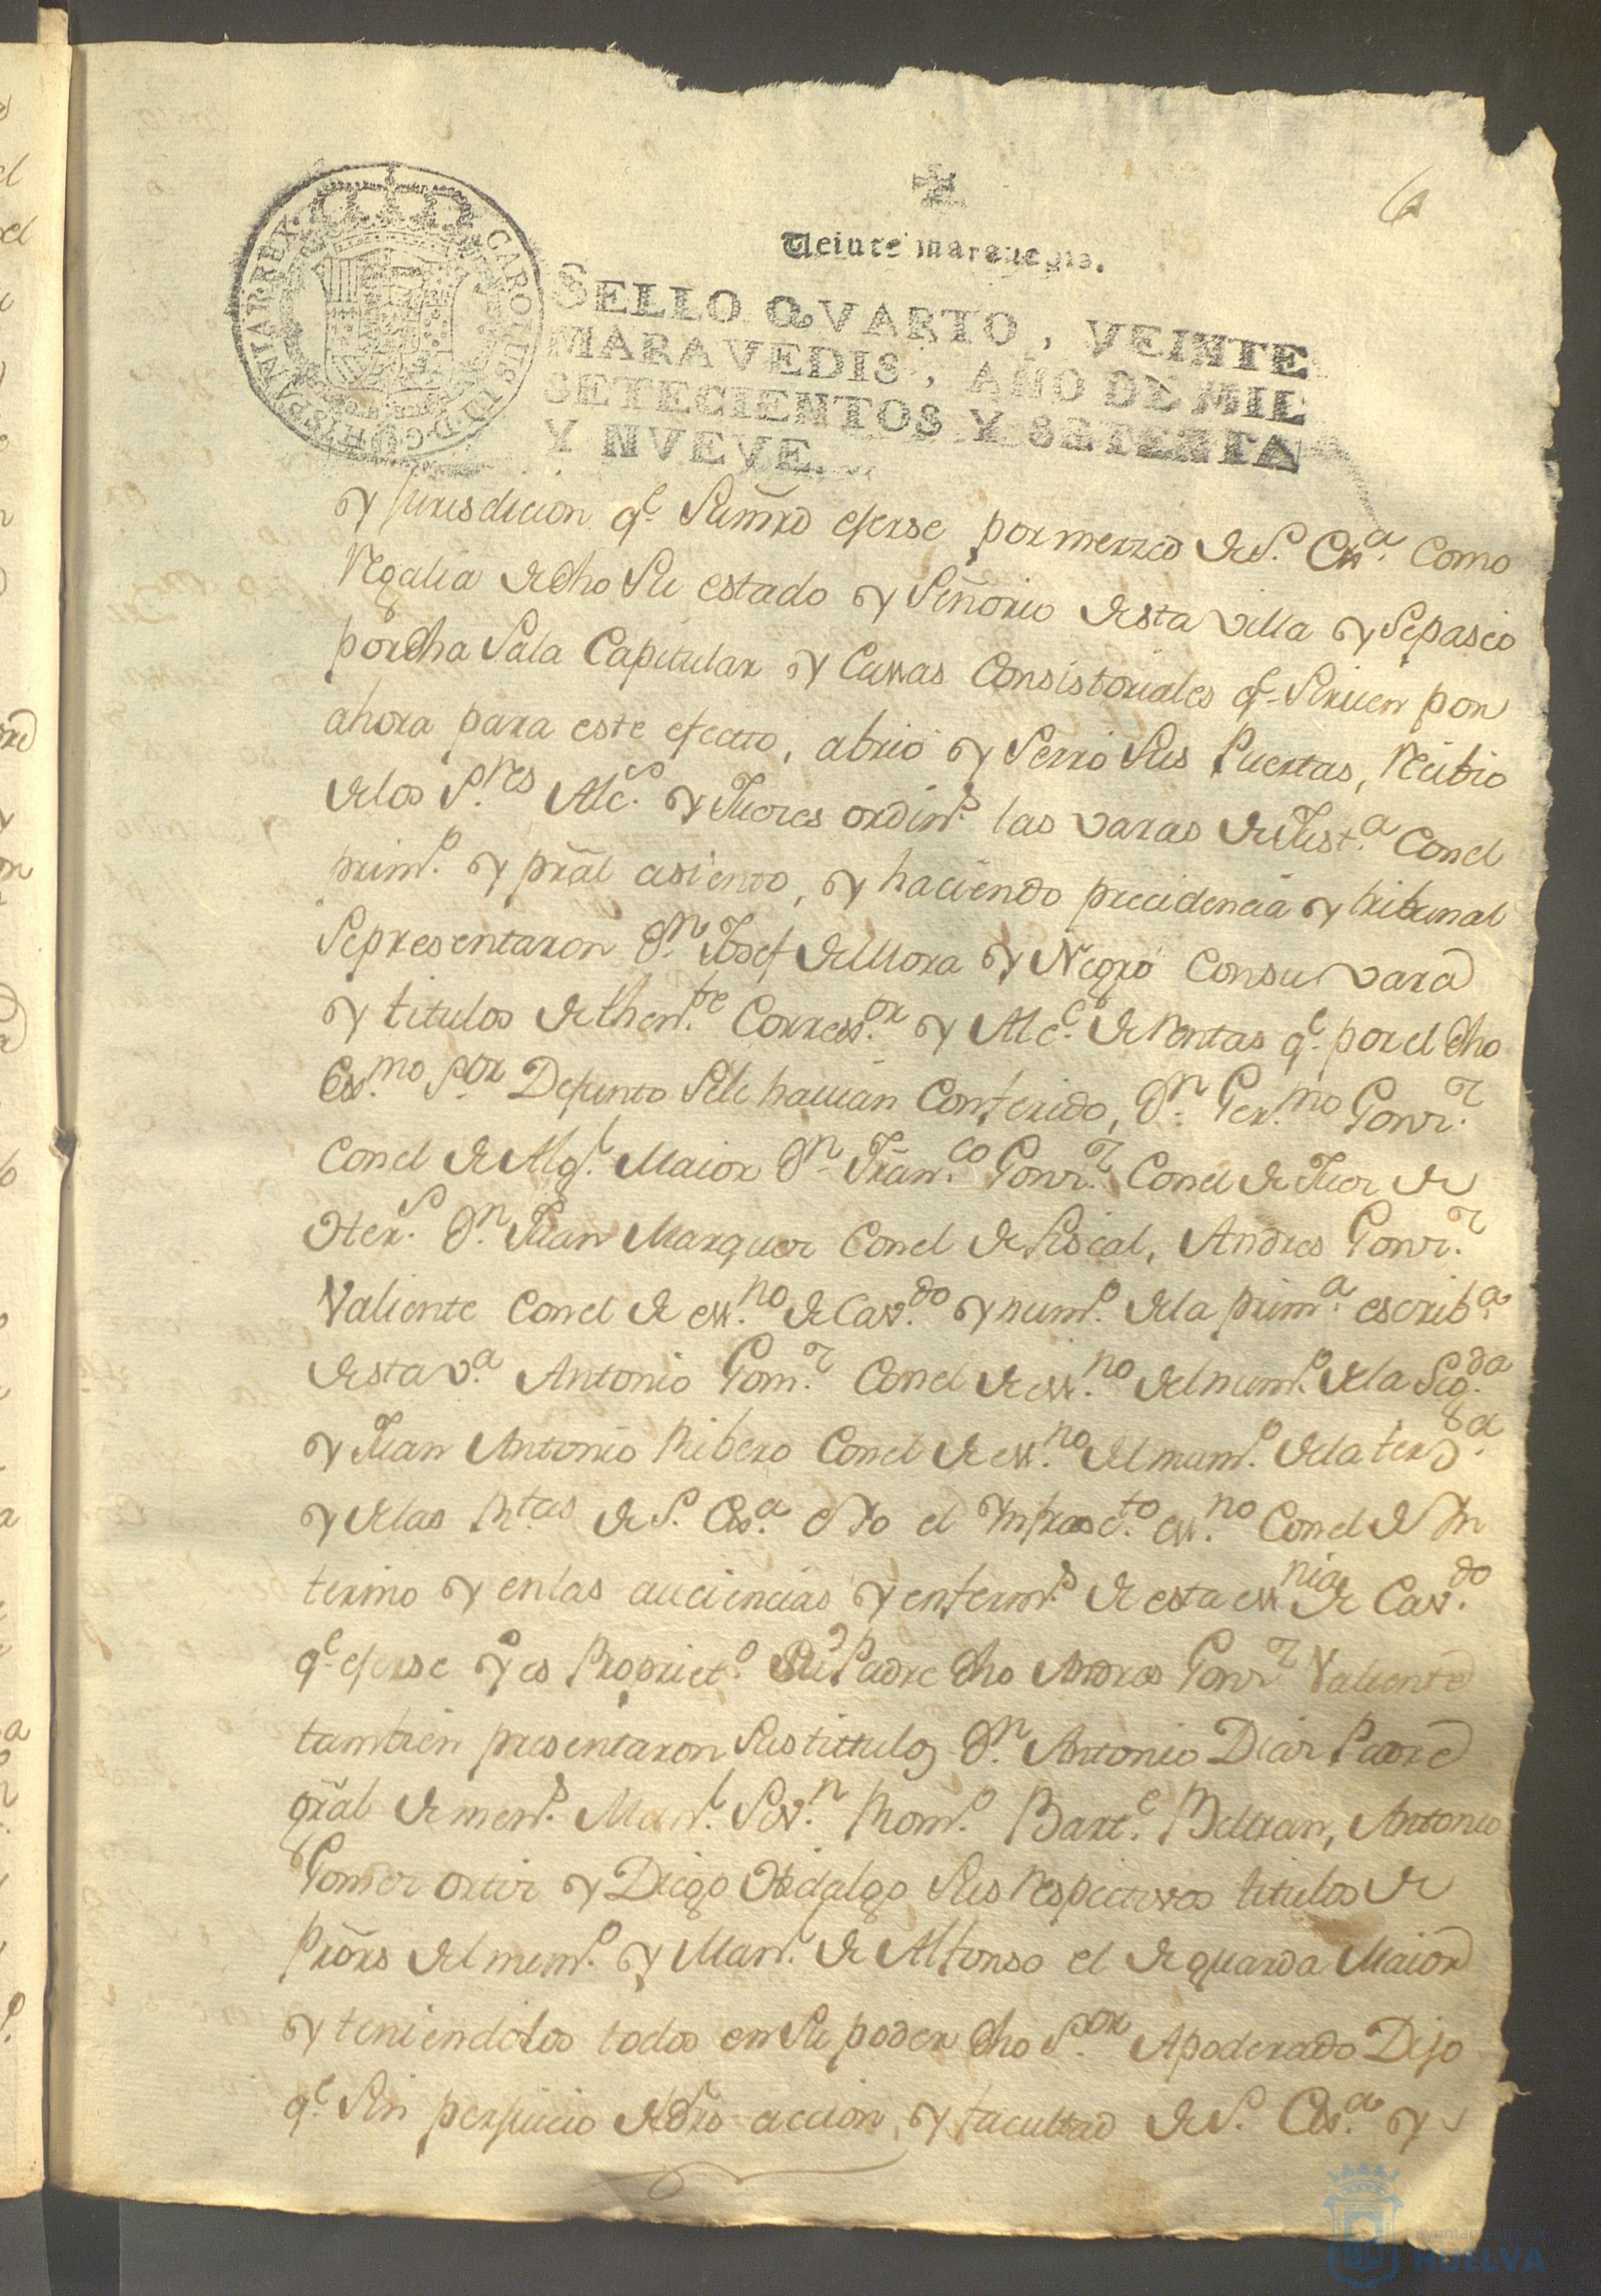 6
Veinte marauedis.
SELLO QVARTO, VEINTE
MARAVEDIS, AÑO DE MIL
SETECIENTOS Y SETENTA
Y NVEVE.
CAROLUS III D G HISPANIAR REX
y jurisdicion q.e Sum̃rd eserse por merzed de S. Ex.a Como
Regalia de dho Su estado y Señorio desta villa y Sepaseo
por dha Sala Capitular y Cassas Consistoriales q.e Siruen por
ahora para este efecto, abrio y Serro Sus Puertas, Recibio
de los S.res Alc.s y Jueces ordin.s las varas de Just.a Con el
prim.o y prãl asiento, y haciendo precidencia y tribunal
Sepresentaron D.n Josef de Mora y Negro Consu vara
y titulos de then.te Correx.or y Alc.e de Rentas q.e por el dho
Ex.mo S.or Defunto Sele hauian Conferido, D.n Ger.mo Gonz.z
Conel de Alg.l Maior D.n Fran.co Gonz.z Conel de Juez de
Hex.s D.n Juan Marquez Conel de Fiscal, Andres Gonz.z
Valiente Conel de ess.no de Cav.do y num.o dela prim.a escrib.a
desta v.a Antonio Gom.z Conel de ess.no del num.o dela Seg.da
y Juan Antonio Ribero Conel de ess.no del num.o dela ter.a
y delas R.tas de S. Ex.a e Yo el Infrasc.to ess.no Conel de In
terino y enlas auciencias y enferm.s de esta ess.nia de Cav.do
q.e eserse y es Propriet.o Su Padre dho Andres Gonz.z Valiente
tambien presentaron Sus tittulos D.n Antonio Diaz Padre
grãl de men.s Man.l Rom.o Bart.e Beltran, Antonio
Gomez ortiz y Diego Hidalgo Sus Respectivos titulos de
Prõrs del num.o y Man.l de Alfonso el de guarda Maior
y teniendolos todos en Su poder dho S.or Apoderado Dijo
q.e Sin perjuicio del dro accion, y facultad de S. Ex.a y
Ayuntamiento de
HUELVA